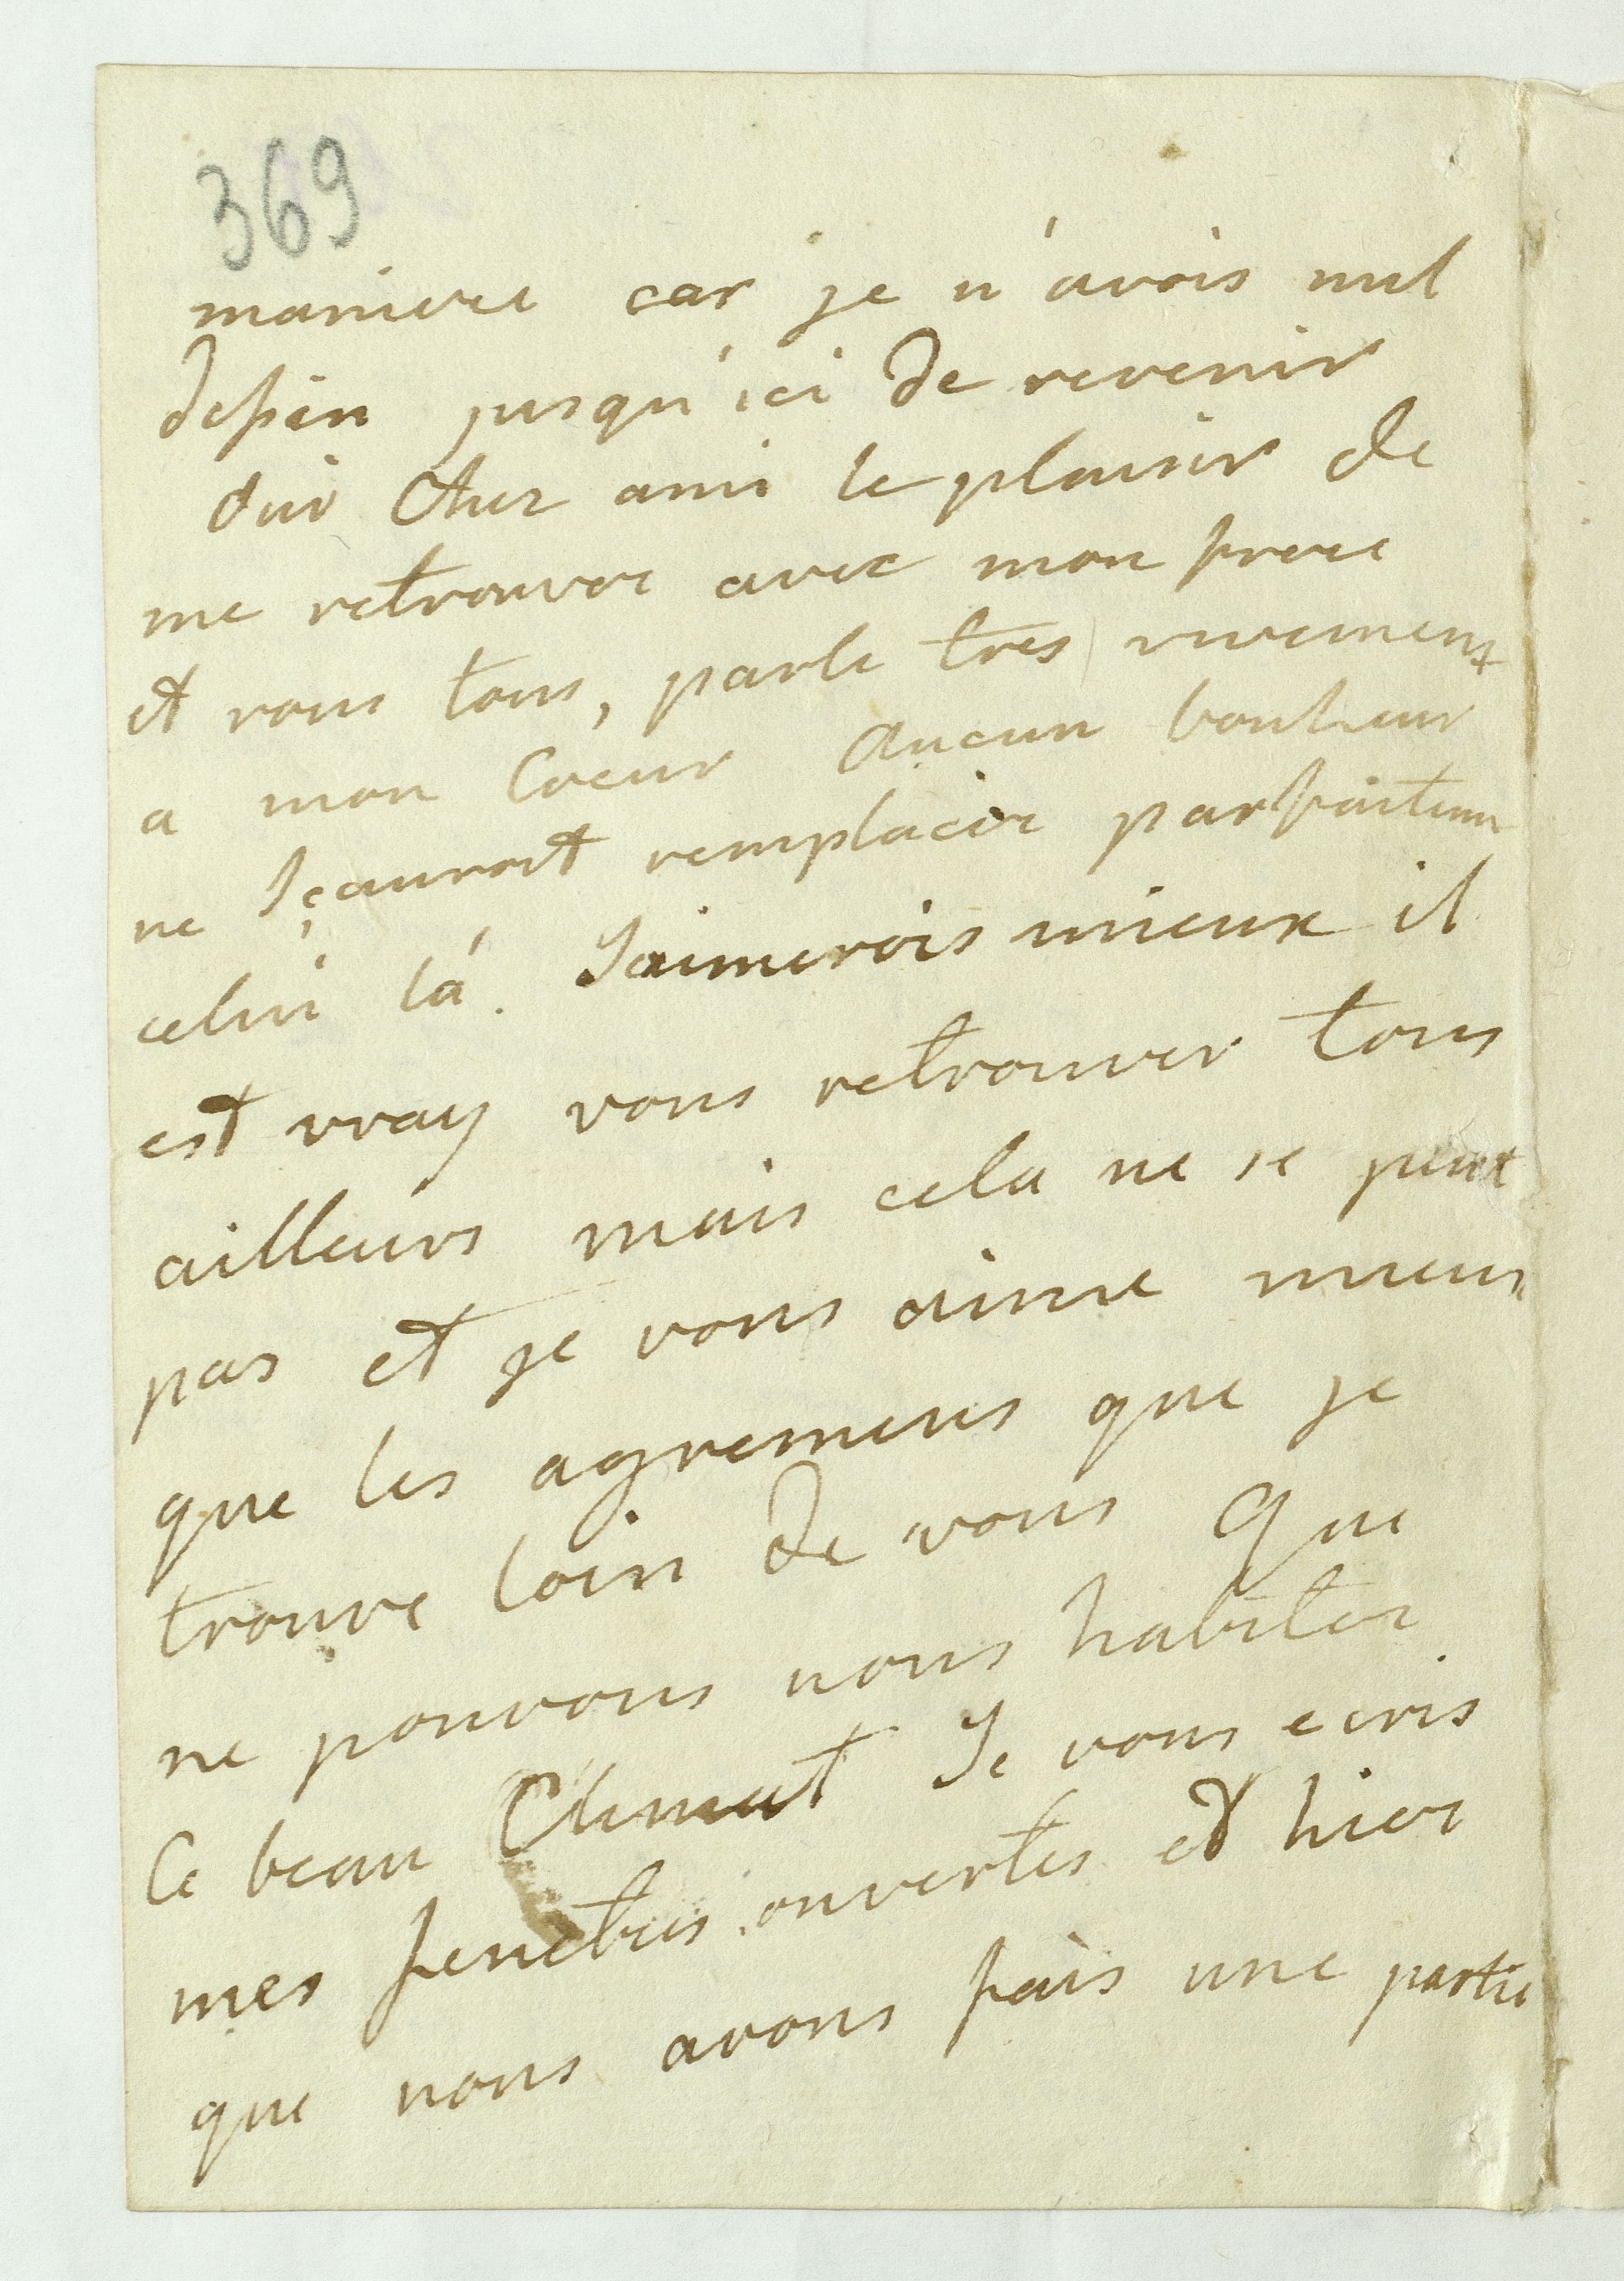 369
maniere car je n'avois nul
dessein jusqu'ici de revenir
oui Cher ami le plaisir de
me retrouver avec mon frere
et vous tous, parle tres vivement
a mon Coeur aucun bonheur
ne sçauroit remplacer parfaitem
celui là. J'aimerois mieux il
est vray vous retrouver tous
ailleurs mais cela ne se peut
pas et je vous aime mieux
que les agremens que je
trouve loin de vous que
ne pouvons nous habiter
Ce beau Climat Je vous ecris
mes fenetres ouvertes et hier
que nous avons fais une partie